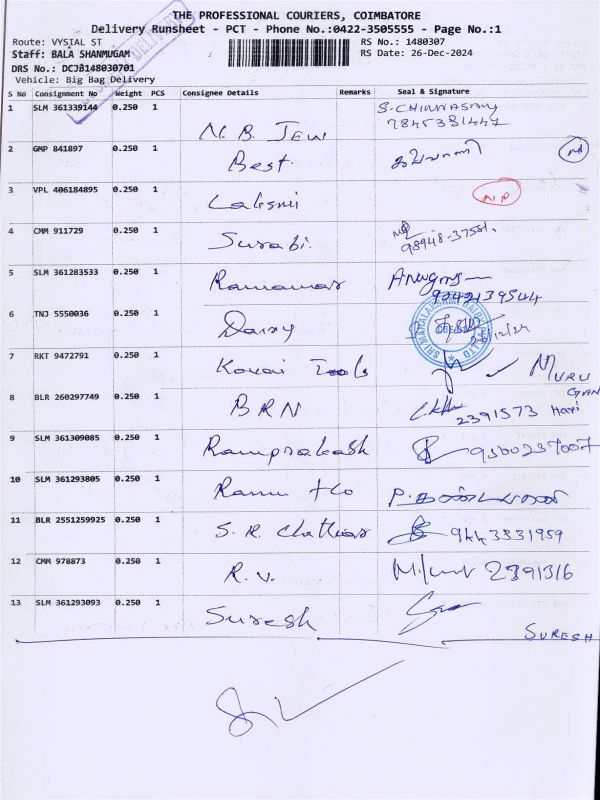 THE PROFESSIONAL COURIERS, COIMBATORE
Delivery Runsheet - PCT - Phone No.:0422-3505555 - Page No.:1
Route: VYSIAL ST RS No.: 1480307
Staff: BALA SHANMUGAM RS Date: 26-Dec-2024
DRS No.: DCJB148030701
Vehicle: Big Bag Delivery
S No Consignment No Weight PCS Consignee Details Remarks Seal & Signature
1 SLM 361339144 0.250 1 N. B. Jew S. CHINNASAMY
7845331447
2 GMP 841897 0.250 1 Best.
3 VPL 406184895 0.250 1 Laksmi N.D
4 CMM 911729 0.250 1 Surabi. 98948-37581.
5 SLM 361283533 0.250 1
9042139544
6 TNJ 5550036 0.250 1 Dairy 26/12/24
7 RKT 9472791 0.250 1 Kovai Tools MURU
GAN
8 BLR 260297749 0.250 1 BRN 2391573 Hari
9 SLM 361309085 0.250 1 Ramprakash
10 SLM 361293805 0.250 1 Ramu
11 BLR 2551259925 0.250 1 S. R. Chettiar 9443331959
12 CMM 978873 0.250 1 R. V. 2391316
13 SLM 361293093 0.250 1 Suresh SURESH